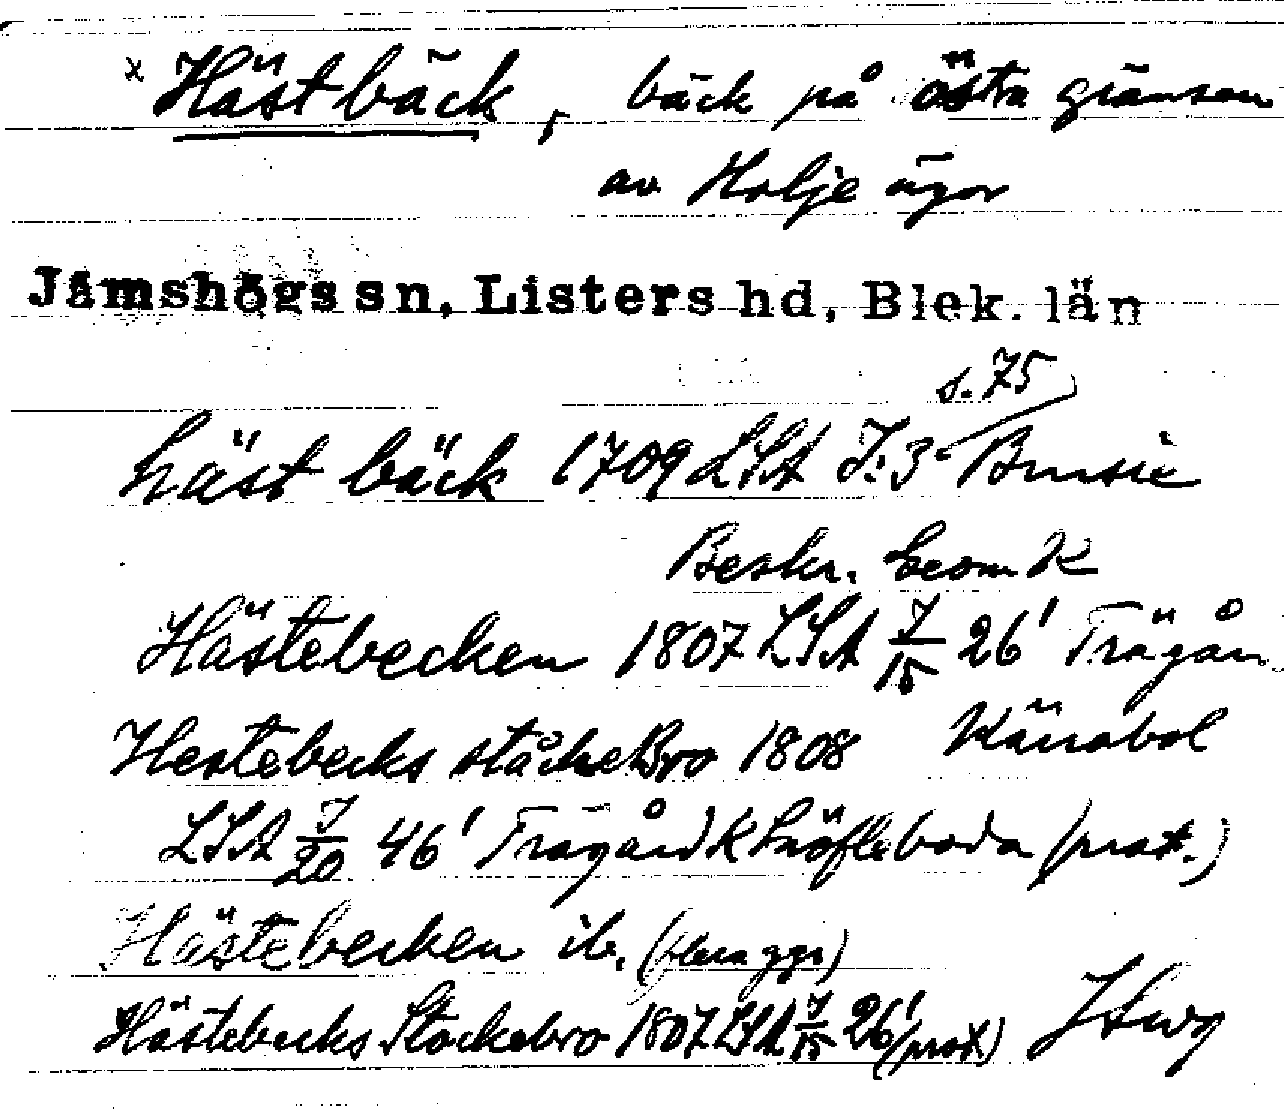 x Hästbäck, bäck på östra gränsen
av Holje ägor
Jämshögs sn, Listers hd, Blek. län
s. 75
häst bäck 1709 LSA J:3
Beskr. Geom K
Hästebecken 1807 LSA J/15 26' Trägån
Hestebecks ståckeBro 1808 Känabol
LSA J/20 46' Trägård K Slöfleboda (prot.)
Hästebecken ib. (flera ggr)
Hästebecks Stockebro 1807 LSA J/15 26' (prot)